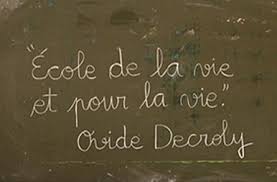 "École de la vie
et pour la vie."
Ovide Decroly